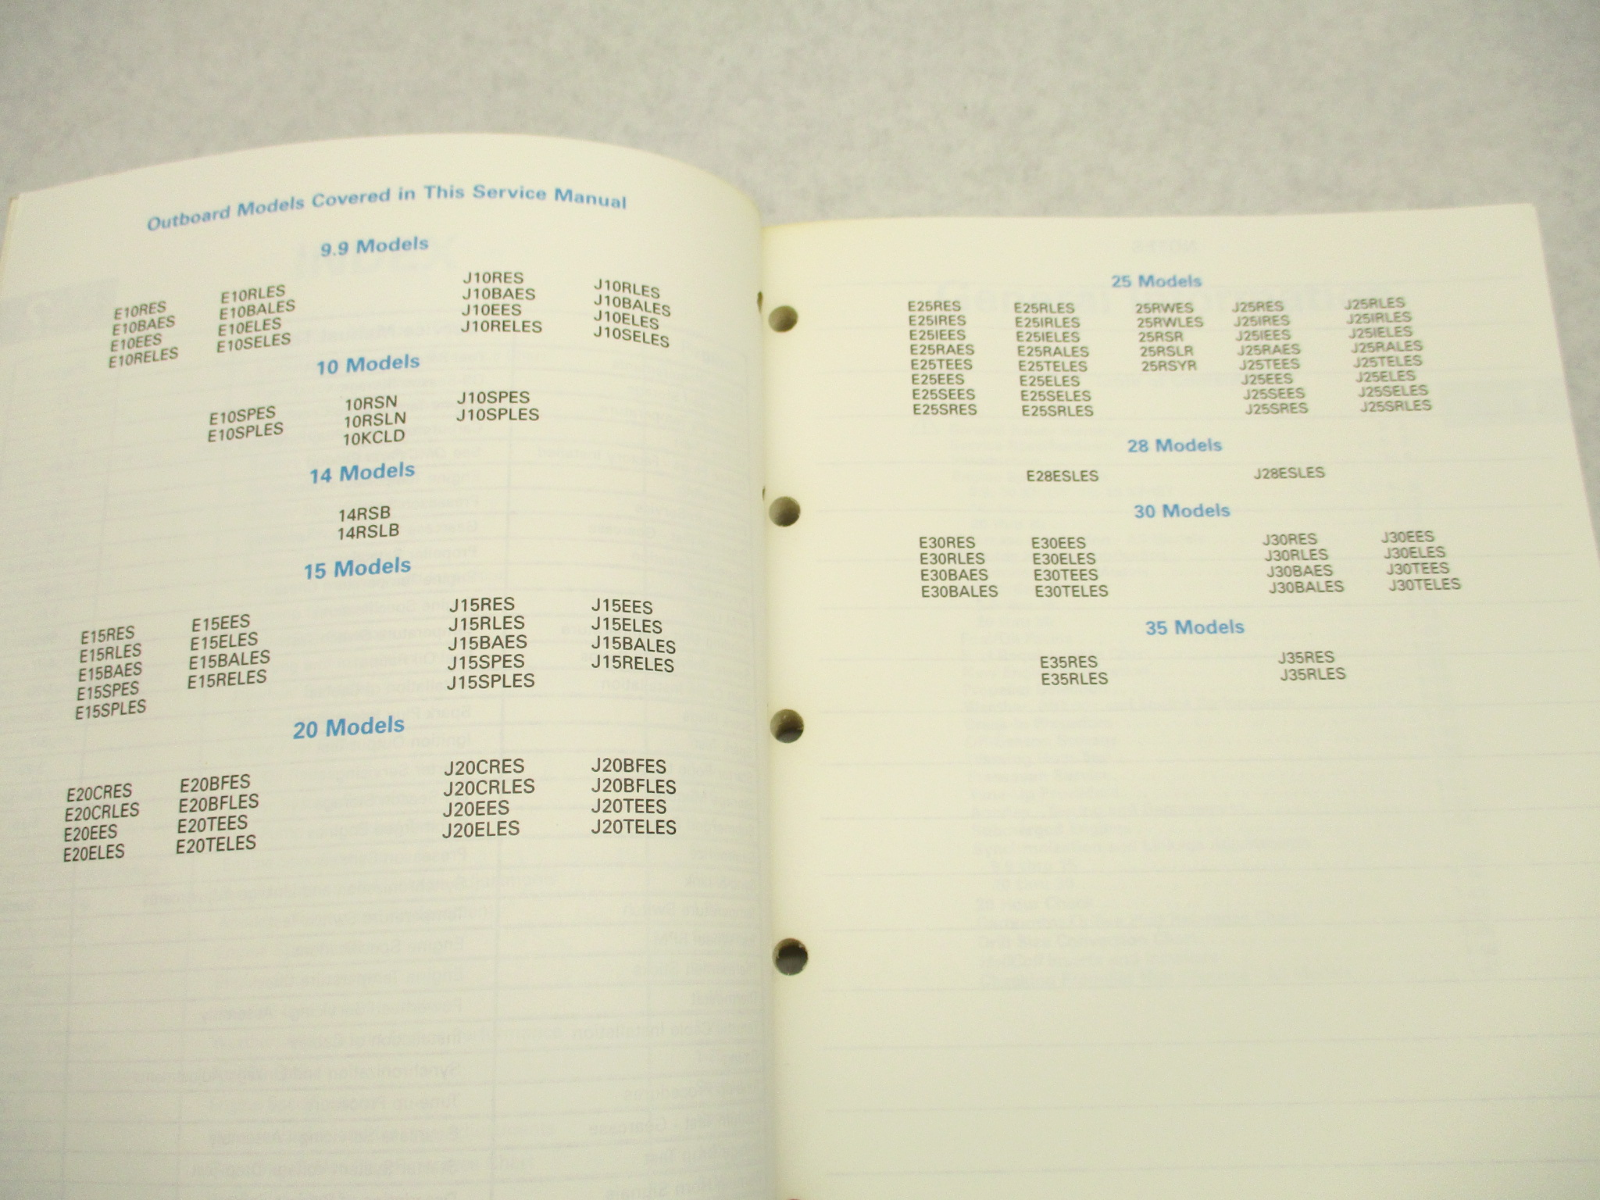 Outboard Models Covered in This Service Manual
9.9 Models
E10RES E10RLES J10RES J10RLES
E10BAES E10BALES J10BAES J10BALES
E10EES E10ELES J10EES J10ELES
E10RELES E10SELES J10RELES J10SELES
10 Models
E10SPES 10RSN J10SPES
E10SPLES 10RSLN J10SPLES
10KCLD
14 Models
14RSB
14RSLB
15 Models
E15RES E15EES J15RES J15EES
E15RLES E15ELES J15RLES J15ELES
E15BAES E15BALES J15BAES J15BALES
E15SPES E15RELES J15SPES J15RELES
E15SPLES J15SPLES
20 Models
E20CRES E20BFES J20CRES J20BFES
E20CRLES E20BFLES J20CRLES J20BFLES
E20EES E20TEES J20EES J20TEES
E20ELES E20TELES J20ELES J20TELES
25 Models
E25RES E25RLES 25RWES J25RES J25RLES
E25IRES E25IRLES 25RWLES J25IRES J25IRLES
E25IEES E25IELES 25RSR J25IEES J25IELES
E25RAES E25RALES 25RSLR J25RAES J25RALES
E25TEES E25TELES 25RSYR J25TEES J25TELES
E25EES E25ELES J25EES J25ELES
E25SEES E25SELES J25SEES J25SELES
E25SRES E25SRLES J25SRES J25SRLES
28 Models
E28ESLES J28ESLES
30 Models
E30RES E30EES J30RES J30EES
E30RLES E30ELES J30RLES J30ELES
E30BAES E30TEES J30BAES J30TEES
E30BALES E30TELES J30BALES J30TELES
35 Models
E35RES J35RES
E35RLES J35RLES